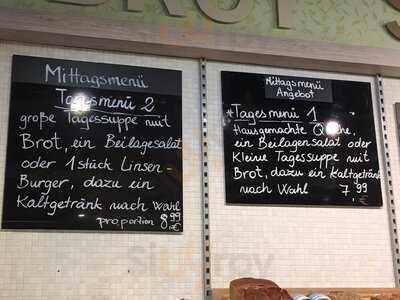 BROT
Mittagsmenü
Tagesmenü 2
große Tagessuppe mit
Brot, ein Beilagesalat
oder 1 stück Linsen-
Burger, dazu ein
Kaltgetränk nach Wahl
pro portion 8,99
Mittagsmenü
Angebot
*Tagesmenü 1
Hausgemachte
ein Beilagensalat oder
Kleine Tagessuppe mit
Brot, dazu ein Kaltgetränk
nach Wahl 7,99